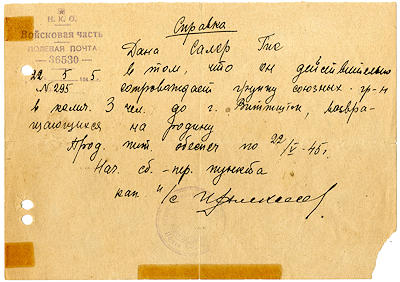 Справка
Н. К. О.
Войсковая часть
ПОЛЕВАЯ ПОЧТА
— 36530 —
22 5 1945
N 295
Дана Салер Гис
в том, что он действительно
сопровождает группу союзных гр-н
в колич. 3 чел. до г. возвра-
щающихся на родину
Прод. пит. обеспеч по 22/V-45.
Нач. сб.-пер. пункта
кап. и/с